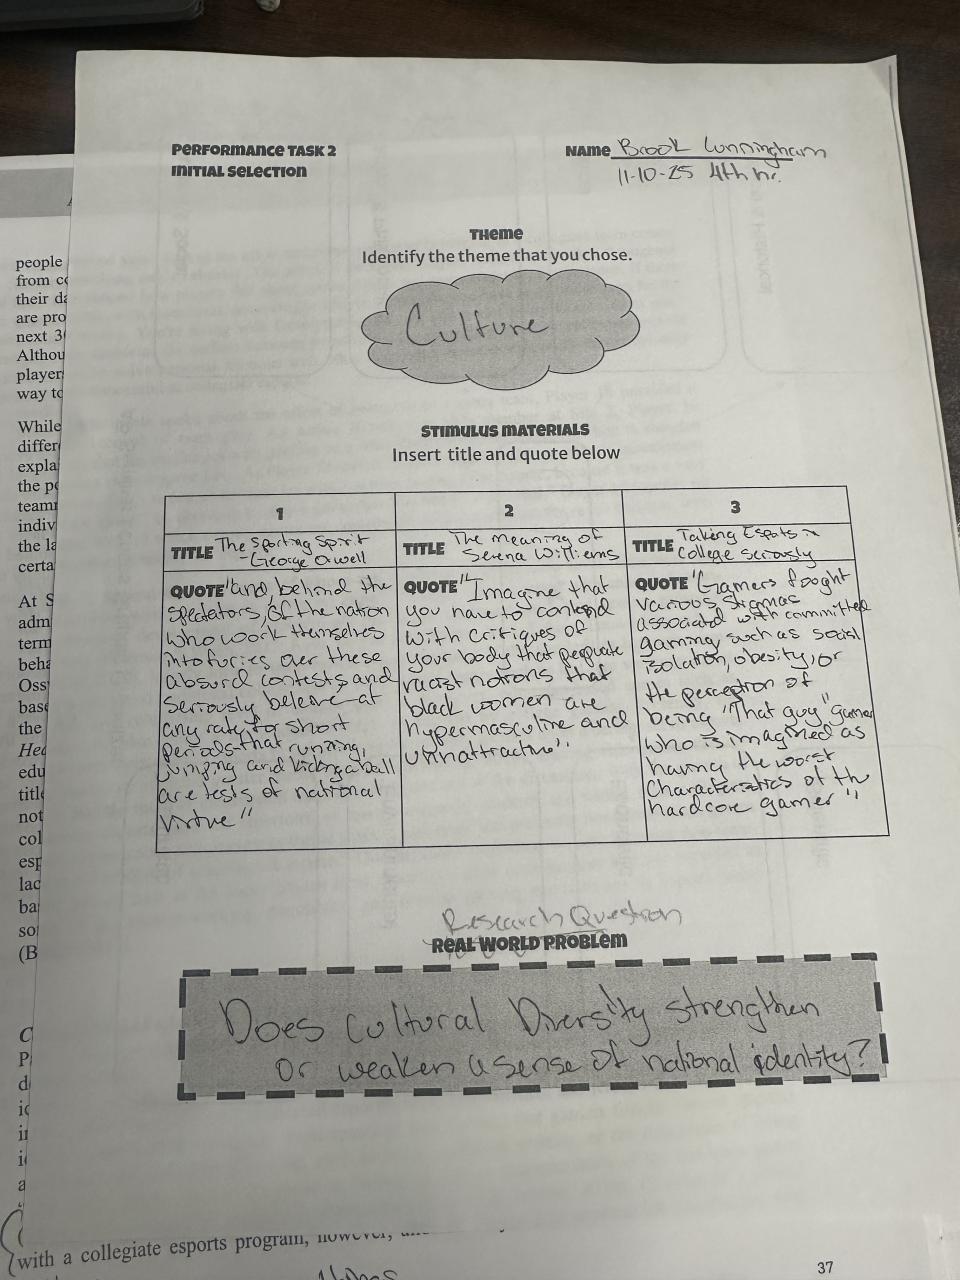 PERFORMANCE TASK 2
INITIAL SELECTION
NAME Brook Cunningham
11-10-25 4th hr.
THEME
Identify the theme that you chose.
Culture
STIMULUS MATERIALS
Insert title and quote below
1
2
3
TITLE The Sporting Spirit
-George Orwell
QUOTE "and behind the
spectators, of the nation
who work themselves
into furies over these
absurd contests, and
seriously believe-at
any rate for short
periods-that running,
jumping and kicking a ball
are tests of national
virtue"
TITLE The meaning of
Serena Williams
QUOTE "Imagine that
you have to contend
with critiques of
your body that perpuate
racist notions that
black women are
hypermasculine and
unnattractive".
TITLE Taking Esports in
College seriously
QUOTE "Gamers fought
various stigmas
associated with committed
gaming, such as social
isolation, obesity, or
the perception of
being "That guy" gamer
who is imagined as
having the worst
characteristics of the
hardcore gamer"
Research Question
REAL WORLD PROBLEM
Does Cultural Diversity strengthen
or weaken a sense of national identity?
people
their
are pro
next 3
Althou
player
way to
While
differ
expla
the
indiv
the la
certa
At S
adm
term
beha
Oss
base
the
Hea
edu
title
not
col
esp
lac
ba
so
(B
with a collegiate esports program, however,
37